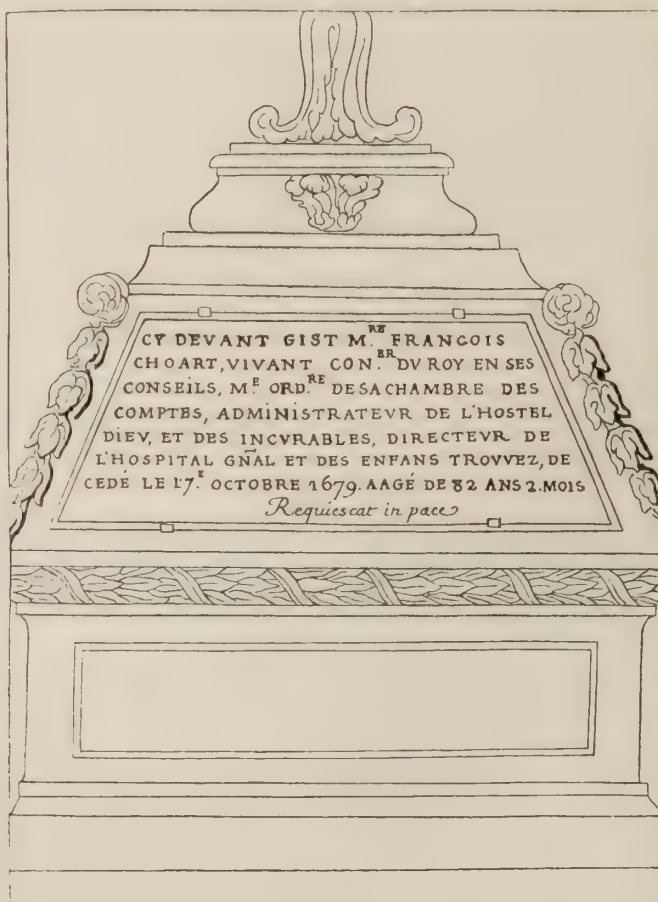 CY DEVANT GIST M.RE FRANCOIS
CHOART, VIVANT CON.ER DV ROY EN SES
CONSEILS, M.E ORD.RE DE SA CHAMBRE DES
COMPTES, ADMINISTRATEVR DE L'HOSTEL
DIEV, ET DES INCVRABLES, DIRECTEVR DE
L'HOSPITAL GÑAL ET DES ENFANS TROVVEZ, DE
CEDÉ LE 17.E OCTOBRE 1679. AAGÉ DE 82 ANS 2. MOIS
Requiescat in pace